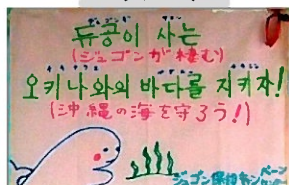 듀공이 사는
(ジュゴンが棲む)
오키나와의 바다를 지키자!
(沖縄の海を守ろう!)
ジュゴン保護キャンペーン
センター